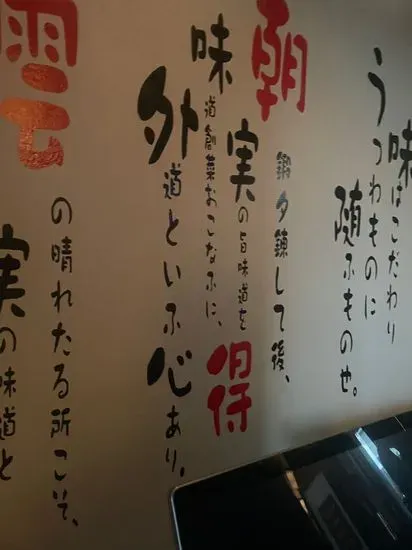 味はこだわり
うつわものに
随ふもの也。
朝鍛夕錬して後、
実の旨味道を得
味道創菜おこなふに、
外道といふ心あり。
雲の晴れたる所こそ、
実の味道と